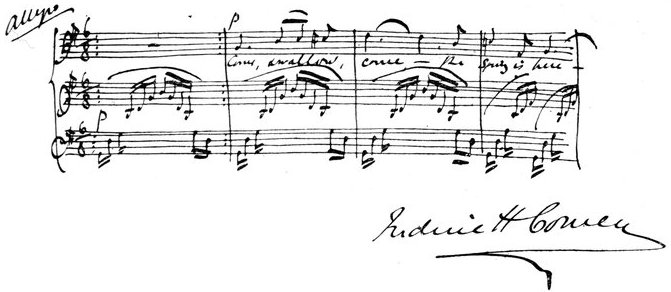 Allegro
6 8 p
Come, swallow, come — the Spring is here —
6 8
p
6 8
Frederic H Cowen